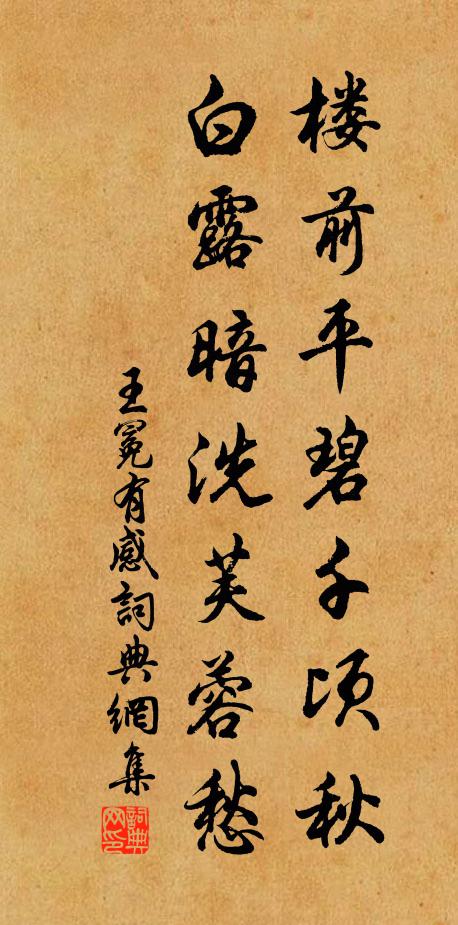 楼前平碧千顷秋
白露暗洗芙蓉愁
王冕有感詞典網集
詞典网印